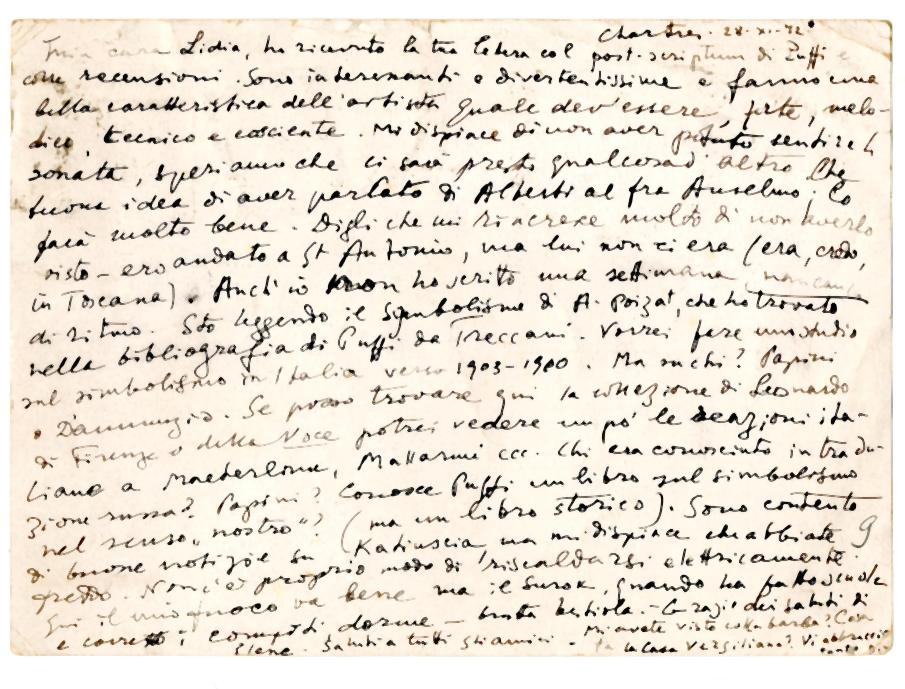 Chartres. 28-XI-72
mia cara Lidia, ho ricevuto la tua lettera col post-scriptum di Zuffi e
recensioni. Sono interessanti e divertentissime e fanno una
bella caratteristica dell'artista quale dev'essere, forte, melo-
dico, tecnico e cosciente. Mi dispiace di non aver potuto sentire la
sonata, speriamo che ci sarà presto qualcosa d'altro. Che
buona idea di aver parlato di Alberti al fra Anselmo; lo
farà molto bene. Digli che mi rincresce molto di non averlo
visto - ero andato a St Antonio, ma lui non ci era (era, credo,
in Toscana). Anch'io non ho scritto una settimana
di ritmo. Sto leggendo il Simbolisme di A. Poizat, che ho trovato
nella bibliografia di Puffi da Treccani. Vorrei fare uno studio
sul simbolismo in Italia verso 1903-1900. Ma su chi? Papini
D'Annunzio. Se posso trovare qui la collezione di Leonardo
di Firenze o della Voce potrei vedere un pò le reazioni ita-
liane a Maeterlinck, Mallarmé ecc. Chi era conosciuto in tradu-
zione russa? Papini? Conosce Puffi un libro sul simbolismo
nel senso "nostro"? (ma un libro storico). Sono contento
di buone notizie su Katiuscia ma mi dispiace che abbiate 9
freddo. Non c'è proprio modo di riscaldarsi elettricamente?
qui il mio fuoco va bene ma il Surok, quando ha fatto scuola
e corretto i compiti dorme - brutta bestiola. - Grazie dei saluti di
Elena. Saluti a tutti gli amici. Mi avete visto colla barba? Cosa
fa la Casa Vergiliana? Vi abbraccio